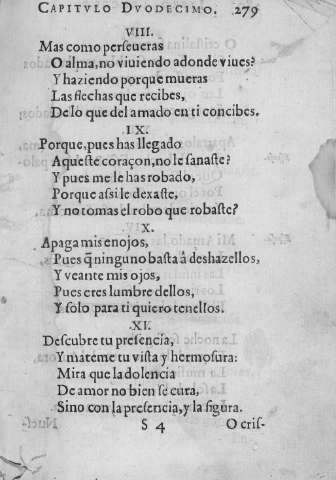 CAPITVLO DVODECIMO. 279
VIII.
Mas como perseueras
O alma, no viuiendo adonde viues?
Y haziendo porque mueras
Las flechas que recibes,
De lo que del amado en ti concibes.
IX.
Porque, pues has llegado
Aqueste coraçon, no le sanaste?
Y pues me le has robado,
Porque assi le dexaste,
Y no tomas el robo que robaste?
X.
Apaga mis enojos,
Pues q̃ ninguno basta â deshazellos,
Y veante mis ojos,
Pues eres lumbre dellos,
Y solo para ti quiero tenellos.
XI.
Descubre tu presencia,
Y mateme tu vista y hermosura:
Mira que la dolencia
De amor no bien se cura,
Sino con la presencia, y la figura.
S 4 O cris-